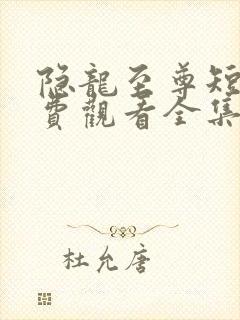 隐龍至尊短
費觀看全集
杜允唐